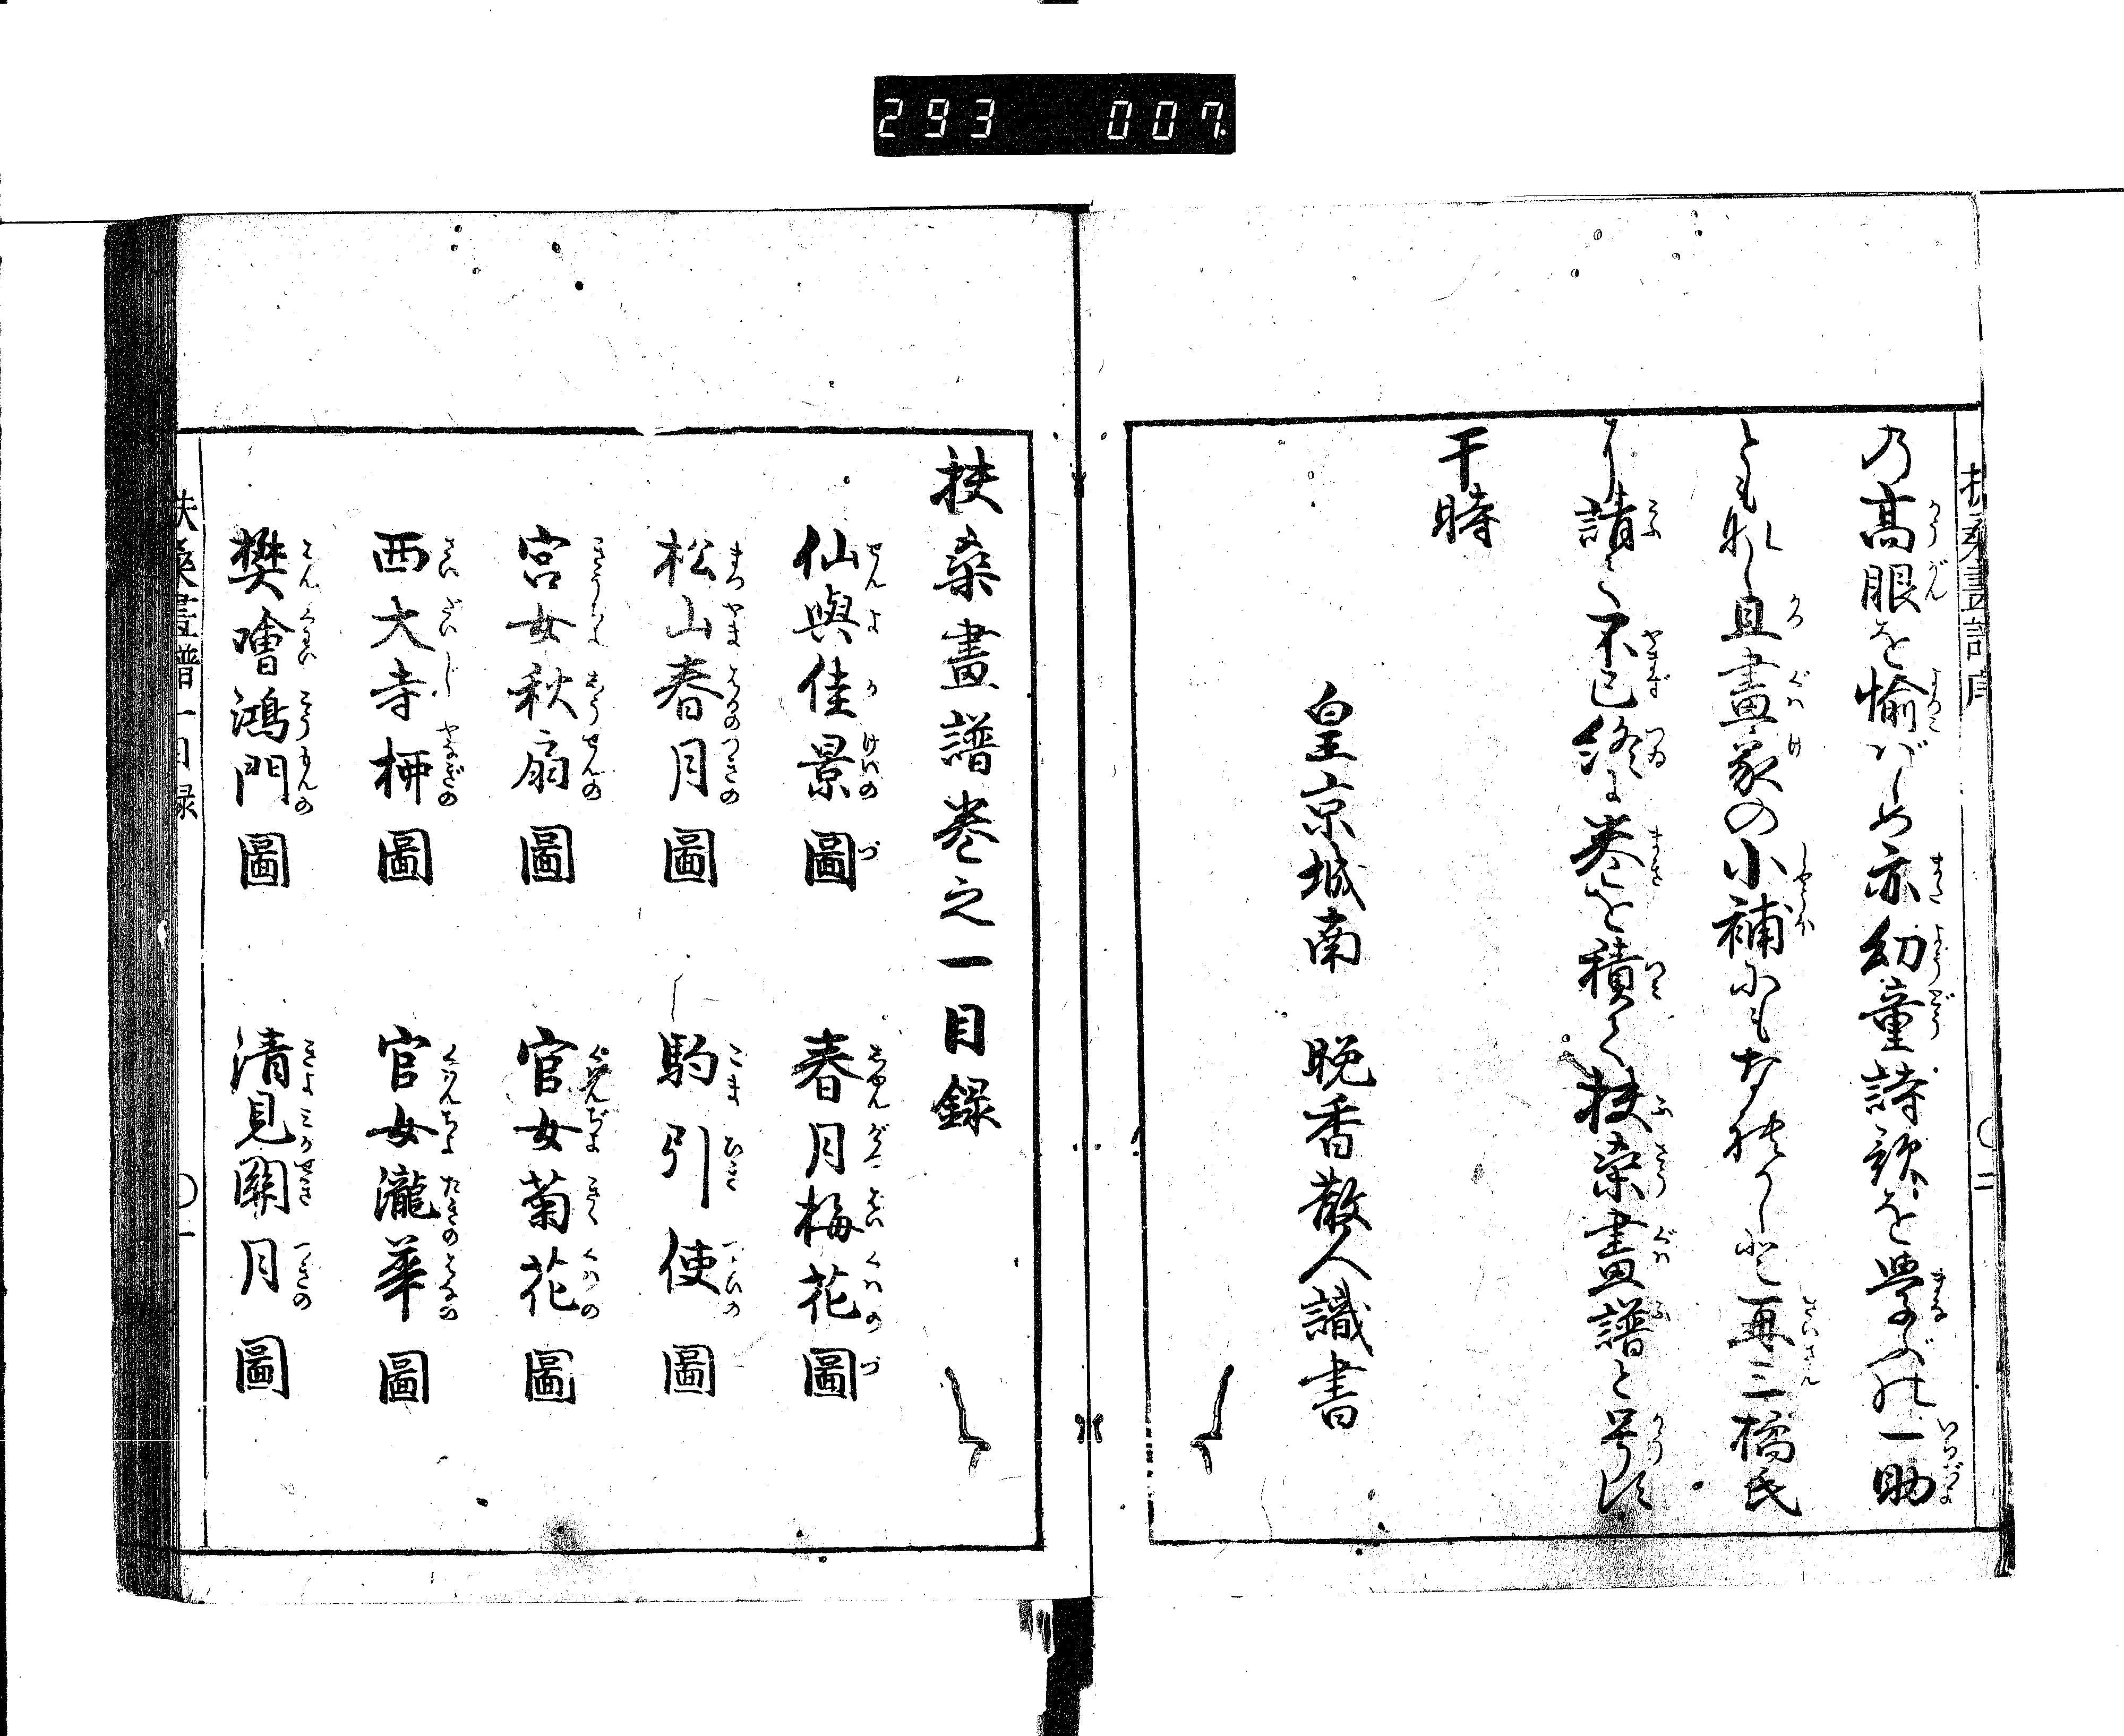 293 007
乃高眼を愉バしめ亦幼童詩歌を學ぶの一助
ともなし且畫家の小補にも
再三橘氏
請て不已終に巻を積て扶桑畫譜と号す
于時
皇京城南 晩香散人識書
扶桑畫譜巻之一目録
仙與佳景圖 春月梅花圖
松山春月圖 駒引使圖
宮女秋扇圖 官女菊花圖
西大寺柳圖 官女瀧華圖
樊噲鴻門圖 清見關月圖
扶桑畫譜一目録 〇一